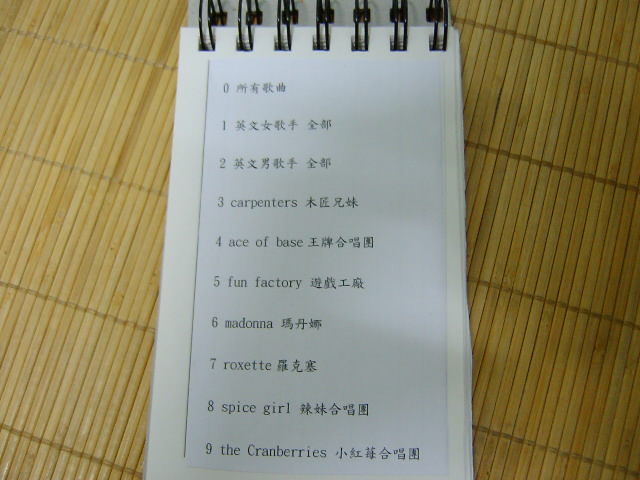 0 所有歌曲
1 英文女歌手 全部
2 英文男歌手 全部
3 carpenters 木匠兄妹
4 ace of base 王牌合唱團
5 fun factory 遊戲工廠
6 madonna 瑪丹娜
7 roxette 羅克塞
8 spice girl 辣妹合唱團
9 the Cranberries 小紅莓合唱團